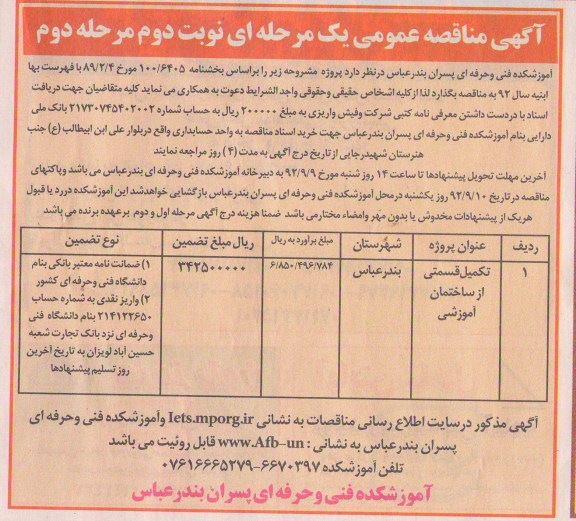 آگهی مناقصه عمومی یک مرحله ای نوبت دوم مرحله دوم
آموزشکده فنی وحرفه ای پسران بندرعباس درنظر دارد پروژه مشروحه زیر را براساس بخشنامه ۱۰۰/۶۴۰۵ مورخ ۸۹/۲/۴ با فهرست بها
ابنیه سال ۹۲ به مناقصه بگذارد لذا از کلیه اشخاص حقیقی وحقوقی واجد الشرایط دعوت به همکاری می نماید کلیه متقاضیان جهت دریافت
اسناد با دردست داشتن معرفی نامه کتبی شرکت وفیش واریزی به مبلغ ۲۰۰۰۰۰ ریال به حساب شماره ۲۱۷۳۰۷۴۵۴۰۲۰۰۲ بانک ملی
دارایی بنام آموزشکده فنی وحرفه ای پسران بندرعباس جهت خرید اسناد مناقصه به واحد حسابداری واقع دربلوار علی ابن ابیطالب (ع) جنب
هنرستان شهیدرجایی از تاریخ درج آگهی به مدت (۴) روز مراجعه نمایند
آخرین مهلت تحویل پیشنهادها تا ساعت ۱۴ روز شنبه مورخ ۹۲/۹/۹ به دبیرخانه آموزشکده فنی وحرفه ای بندرعباس می باشد وپاکتهای
مناقصه در تاریخ ۹۲/۹/۱۰ روز یکشنبه درمحل آموزشکده فنی وحرفه ای پسران بندرعباس بازگشایی خواهدشد این آموزشکده دررد یا قبول
هریک از پیشنهادات مخدوش یا بدون مهر وامضاء مختارمی باشد ضمنا هزینه درج آگهی مرحله اول و دوم برعهده برنده می باشد
ردیف عنوان پروژه شهرستان مبلغ برآورد به ریال ریال مبلغ تضمین نوع تضمین
۱ تکمیل قسمتی از ساختمان آموزشی بندرعباس ۶/۸۵۰/۴۹۶/۷۸۴ ۳۴۲۵۰۰۰۰۰
۱) ضمانت نامه معتبر بانکی بنام
دانشگاه فنی وحرفه ای کشور
۲) واریز نقدی به شماره حساب
۲۱۴۱۲۲۶۵۰ بنام دانشگاه فنی
وحرفه ای نزد بانک تجارت شعبه
حسین آباد لویزان به تاریخ آخرین
روز تسلیم پیشنهادها
آگهی مذکور درسایت اطلاع رسانی مناقصات به نشانی Iets.mporg.ir وآموزشکده فنی وحرفه ای
پسران بندرعباس به نشانی : www.Afb-un قابل روئیت می باشد
تلفن آموزشکده ۶۶۷۰۳۹۷-۰۷۶۱۶۶۶۵۲۷۹
آموزشکده فنی وحرفه ای پسران بندرعباس